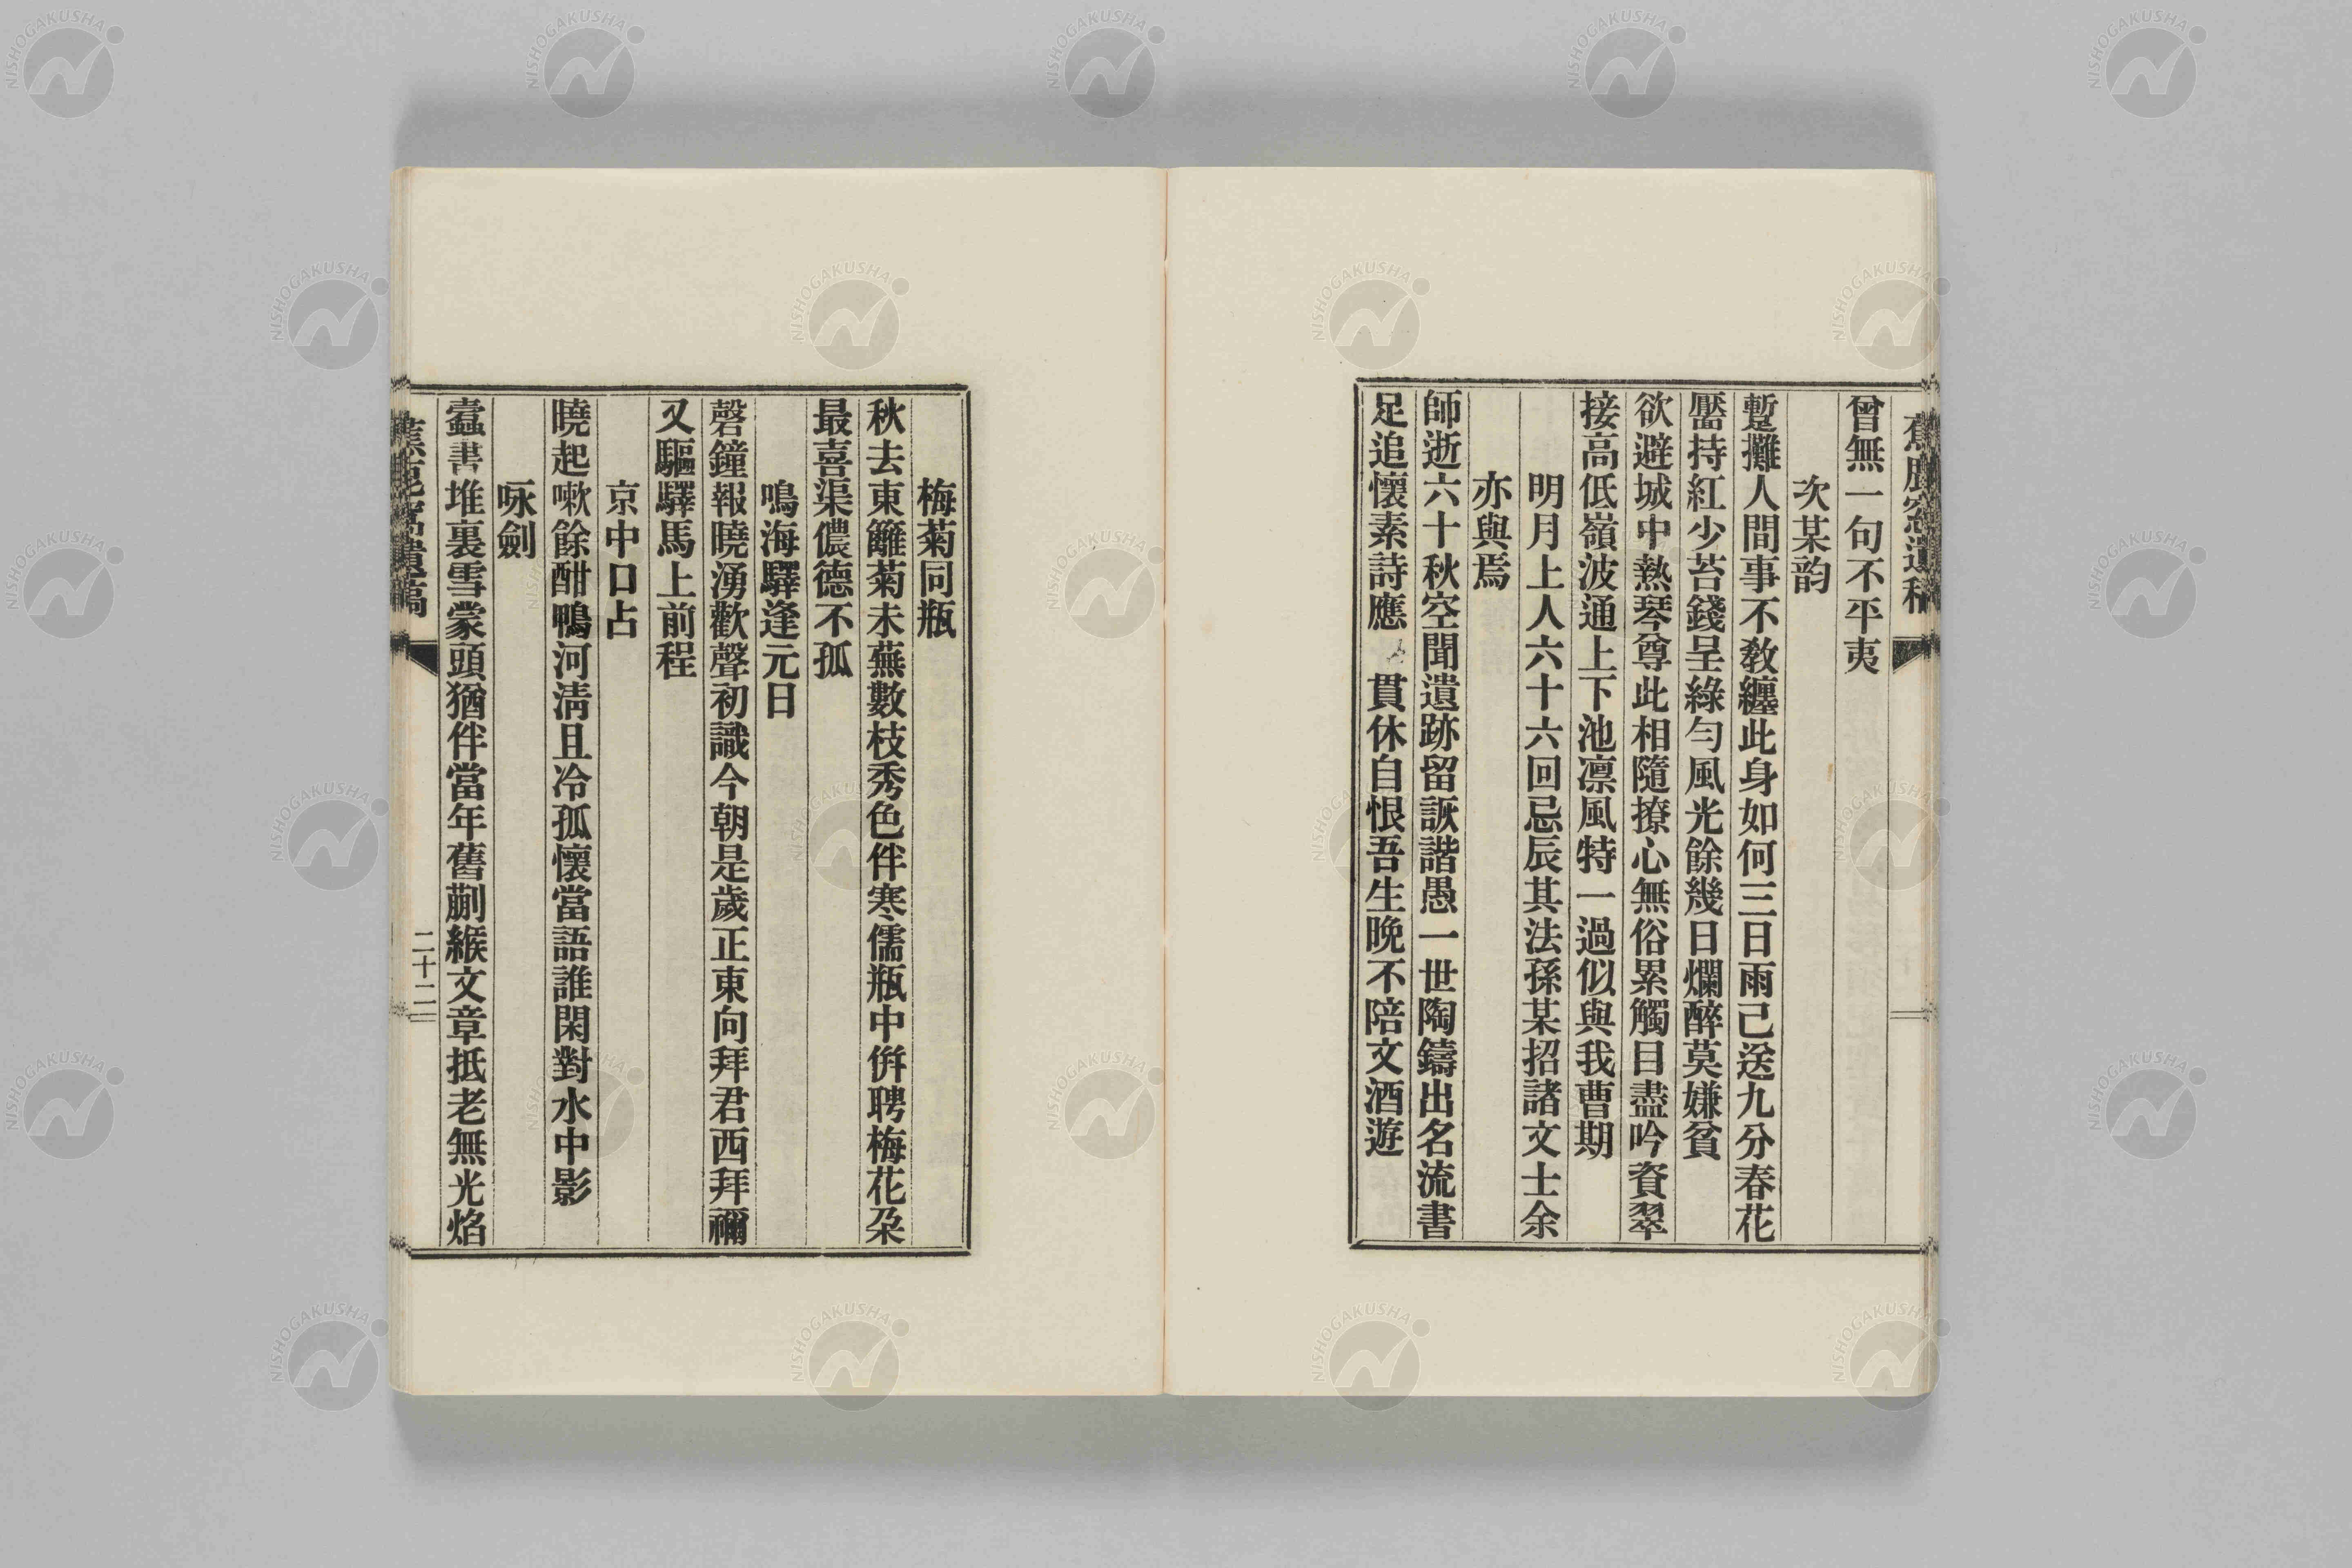 曾無一句不平夷
次某韵
蹔攤人間事不敎纏此身如何三日雨已送九分春花
壓持紅少苔錢呈綠勻風光餘幾日爛醉莫嫌貧
欲避城中熱琴尊此相隨撩心無俗累觸目盡吟資翠
接高低嶺波通上下池凛風特一過似與我曹期
明月上人六十六回忌辰其法孫某招諸文士余
亦與焉
師逝六十秋空聞遺跡留詼諧愚一世陶鑄出名流書
足追懷素詩應貫休自恨吾生晚不陪文酒遊
梅菊同瓶
秋去東籬菊未蕪數枝秀色伴寒儒瓶中倂聘梅花朶
最喜渠儂德不孤
鳴海驛逢元日
磬鐘報曉湧歡聲初識今朝是歲正東向拜君西拜禰
又驅驛馬上前程
京中口占
曉起嗽餘酣鴨河淸且冷孤懷當語誰閑對水中影
咏劍
蠹書堆裏雪蒙頭猶伴當年舊蒯緱文章抵老無光焰
二十二
NISHOGAKUSHA